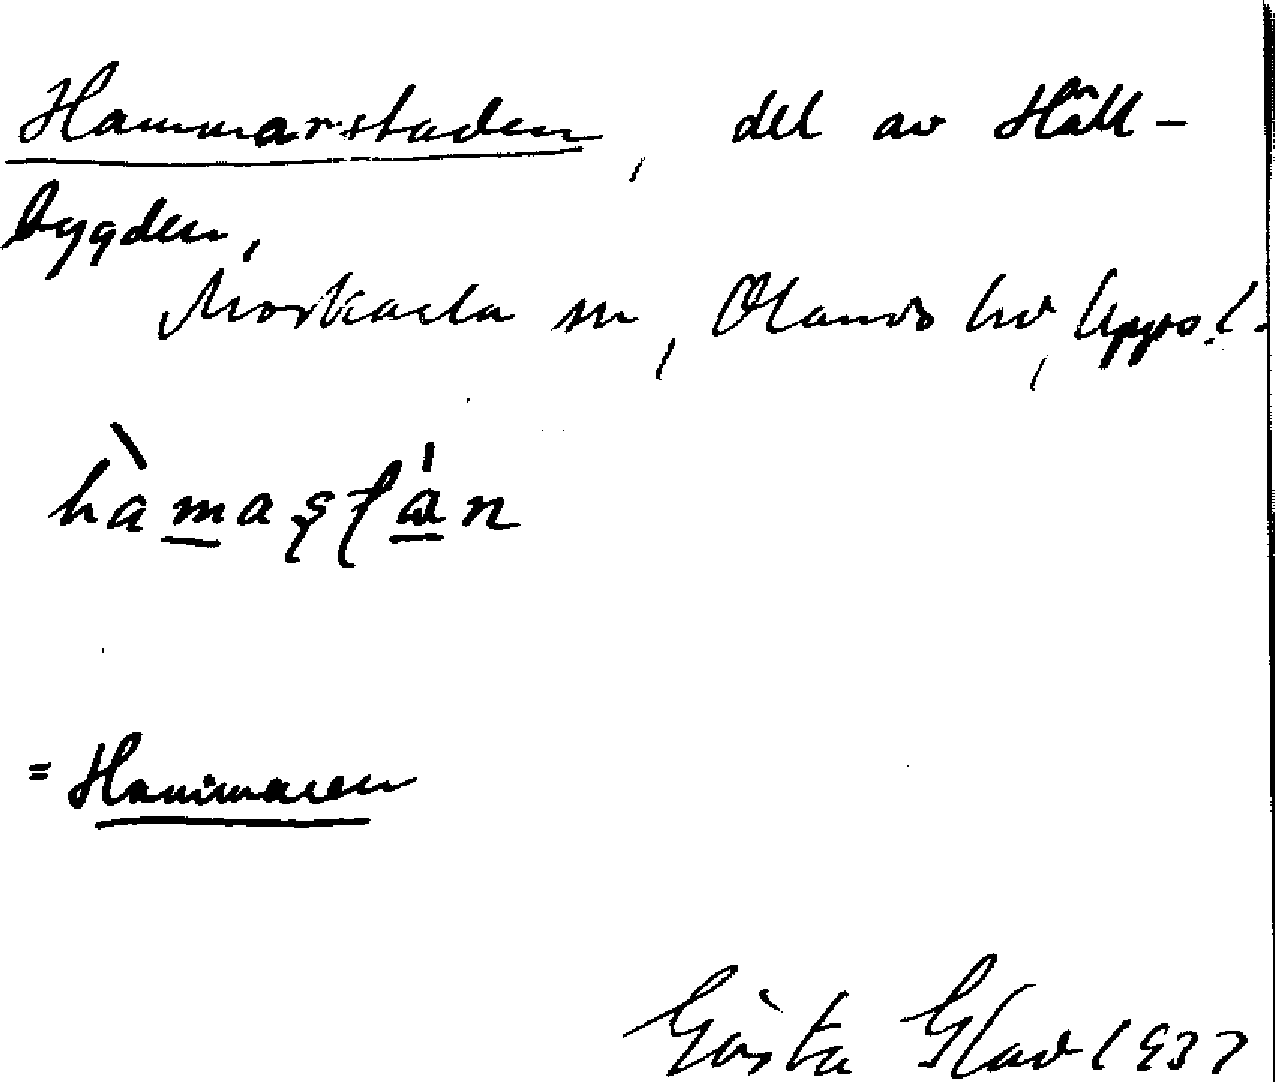 Hammarstaden, del av Häll-
bygden,
Morkarla sn, Olands hd, Upps. l.
= Hammaren
Gösta Glad 1937